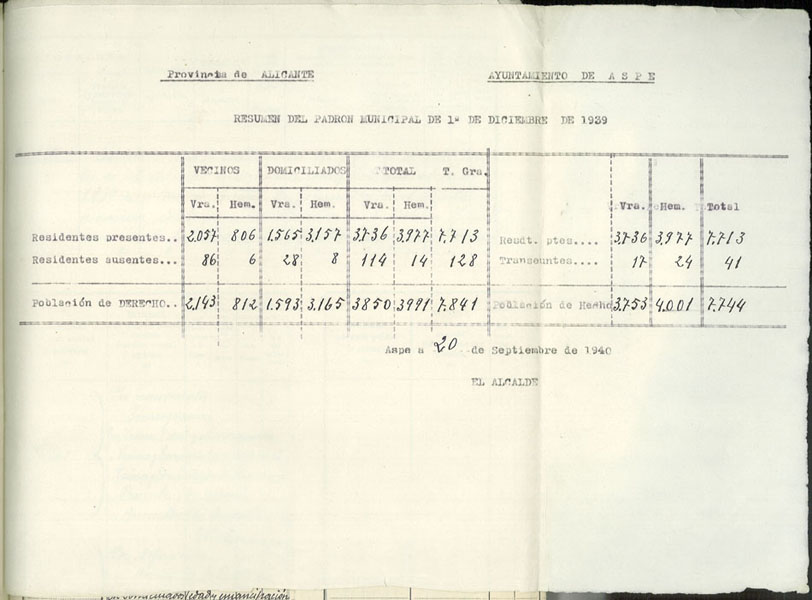 Provincia de ALICANTE AYUNTAMIENTO DE ASPE
RESUMEN DEL PADRON MUNICIPAL DE 1º DE DICIEMBRE DE 1939
VECINOS DOMICILIADOS TOTAL T. Gra.
Vra. Hem. Vra. Hem. Vra. Hem. Vra. Hem. Total
Residentes presentes.. 2,057 806 1.565 3,157 3,736 3,977 7.713 Resdt. ptes.... 3,736 3,977 7,713
Residentes ausentes... 86 6 28 8 114 14 128 Transeuntes.... 17 24 41
Población de DERECHO.. 2,143 812 1.593 3.165 3850 3991 7.841 Población de Hecho 3.753 4.001 7.744
Aspe a 20 de Septiembre de 1940
EL ALCALDE